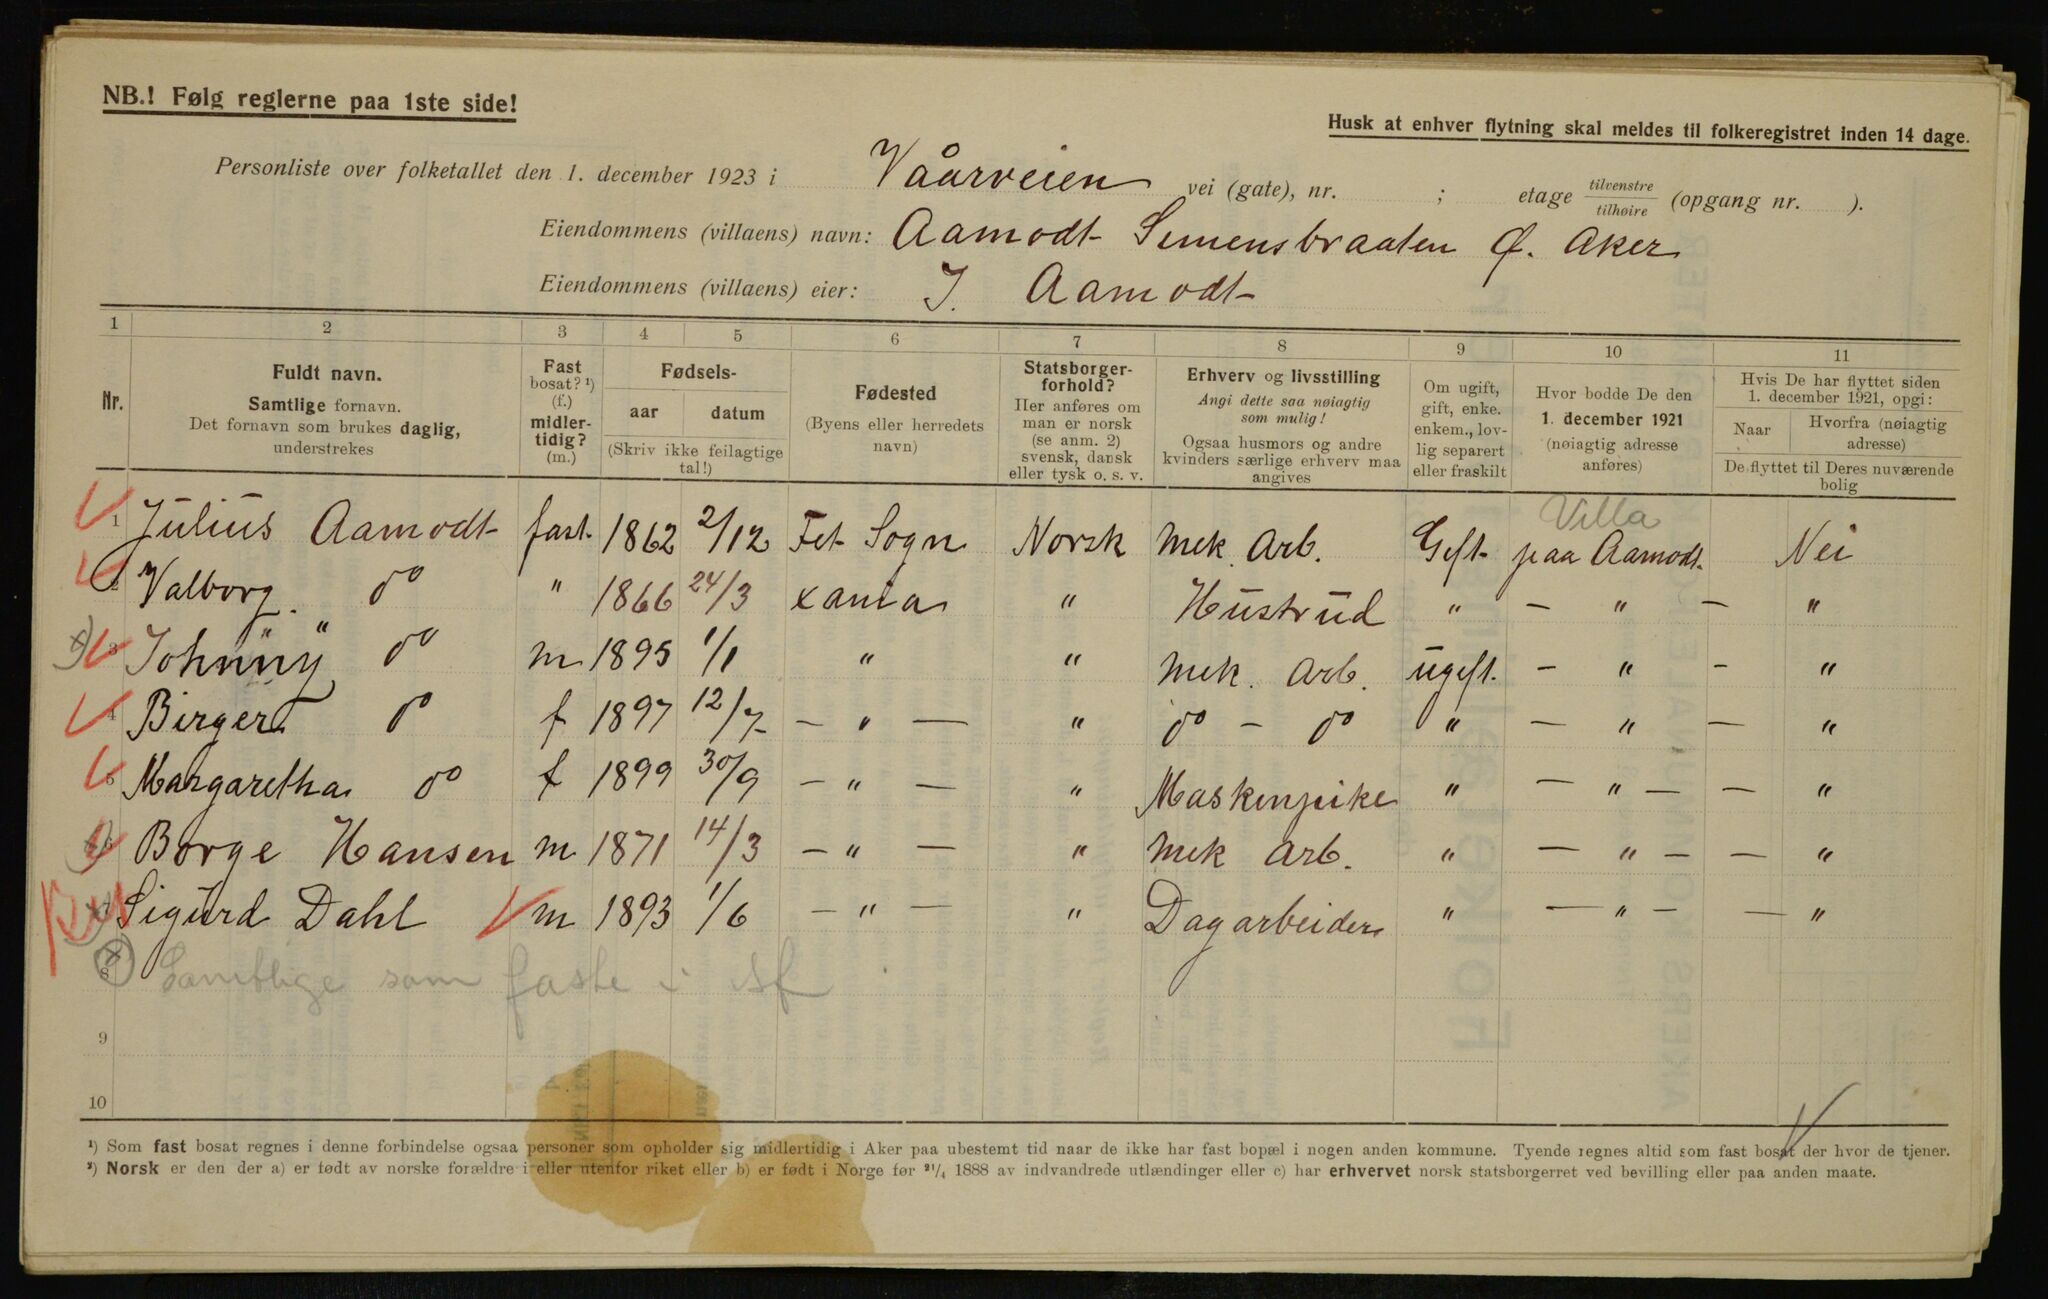 NB.! Følg reglerne paa 1ste side!
Husk at enhver flytning skal meldes til folkeregistret inden 14 dage.
Personliste over folketallet den 1. december 1923 i Våarveien vei (gate), nr. ; etage tilvenstre/tilhøire (opgang nr. ).
Eiendommens (villaens) navn: Aamodt Simensbraaten Ø. Aker
Eiendommens (villaens) eier: J. Aamodt
1 2 3 4 5 6 7 8 9 10 11
Nr.
Fuldt navn.
Samtlige fornavn.
Det fornavn som brukes daglig,
understrekes
Fast
bosat? ¹)
(f.)
midler-
tidig?
(m.)
Fødsels-
aar datum
(Skriv ikke feilagtige
tal!)
Fødested
(Byens eller herredets
navn)
Statsborger-
forhold?
Her anføres om
man er norsk
(se anm. 2)
svensk, dansk
eller tysk o. s. v.
Erhverv og livsstilling
Angi dette saa nøiagtig
som mulig!
Ogsaa husmors og andre
kvinders særlige erhverv maa
angives
Om ugift,
gift, enke.
enkem., lov-
lig separert
eller fraskilt
Hvor bodde De den
1. december 1921
(nøiagtig adresse
anføres)
Hvis De har flyttet siden
1. december 1921, opgi:
Naar
Hvorfra (nøiagtig
adresse)
De flyttet til Deres nuværende
bolig
Villa
1 Julius Aamodt fast. 1862 2/12 Fet Sogn Norsk Mek. Arb. Gift paa Aamodt. Nei
2 Valborg do " 1866 24/3 Xania " Hustrud " — " — "
3 Johnny do m 1895 1/1 " " Mek. Arb. ugift. — " — "
4 Birger do f 1897 12/7 — " — " do — do " — " — "
5 Margaretha do f 1899 30/9 — " — " Maskinpike " — " — — "
6 Borge Hansen m 1871 14/3 — " — " Mek Arb. " — " — — "
7 Sigurd Dahl m 1893 1/6 — " — " Dagarbeider " — " — — "
8 Samtlige som faste i
9
10
¹) Som fast bosat regnes i denne forbindelse ogsaa personer som opholder sig midlertidig i Aker paa ubestemt tid naar de ikke har fast bopæl i nogen anden kommune. Tyende regnes altid som fast bosat der hvor de tjener.
²) Norsk er den der a) er født av norske forældre i eller utenfor riket eller b) er født i Norge før ²¹/₄ 1888 av indvandrede utlændinger eller c) har erhvervet norsk statsborgerret ved bevilling eller paa anden maate.